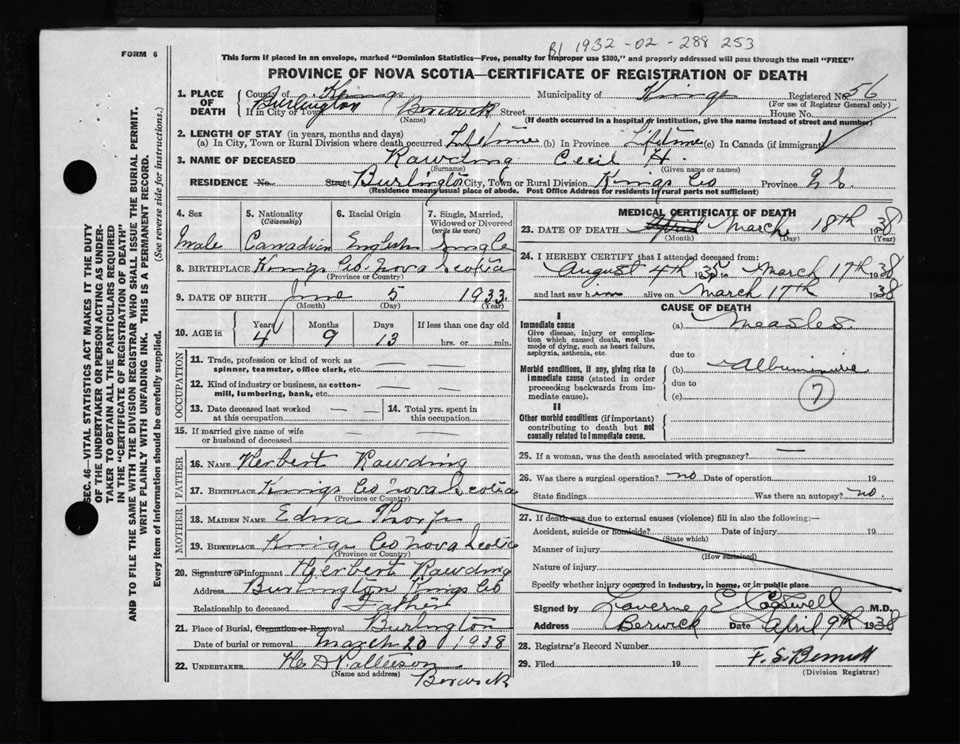 FORM 6
B1 1932-02-288253
This form if placed in an envelope, marked "Dominion Statistics—Free, penalty for improper use $300," and properly addressed will pass through the mail "FREE"
PROVINCE OF NOVA SCOTIA—CERTIFICATE OF REGISTRATION OF DEATH
1. PLACE OF DEATH County of Kings Municipality of Kings Registered No. 56
(For use of Registrar General only)
Burlington If in City or Town Berwick Street House No.
(Name) (If death occurred in a hospital or institution, give the name instead of street and number)
2. LENGTH OF STAY (in years, months and days)
(a) In City, Town or Rural Division where death occurred Lifetime (b) In Province Lifetime (c) In Canada (if immigrant)
3. NAME OF DECEASED Rawding Cecil H.
(Surname) (Given name or names)
RESIDENCE No. Street Burlington City, Town or Rural Division Kings Co Province
(Residence means usual place of abode. Post Office Address for residents in rural parts not sufficient)
4. Sex 5. Nationality (Citizenship) 6. Racial Origin 7. Single, Married, Widowed or Divorced (write the word)
Male Canadian English Single
8. BIRTHPLACE Kings Co. Nova Scotia
(Province or Country)
9. DATE OF BIRTH June 5 1933
(Month) (Day) (Year)
10. AGE in Years Months Days If less than one day old
4 9 13 hrs. or min.
OCCUPATION
11. Trade, profession or kind of work as spinner, teamster, office clerk, etc. — —
12. Kind of industry or business, as cotton-mill, lumbering, bank, etc. — —
13. Date deceased last worked at this occupation — — 14. Total yrs. spent in this occupation —
15. If married give name of wife or husband of deceased — —
FATHER
16. NAME Herbert Rawding
17. BIRTHPLACE Kings Co Nova Scotia
(Province or Country)
MOTHER
18. MAIDEN NAME Edna
19. BIRTHPLACE Kings Co Nova Scotia
(Province or Country)
20. Signature of informant Herbert Rawding
Address Burlington Kings Co
Relationship to deceased Father
21. Place of Burial, Cremation or Removal Burlington
Date of burial or removal March 20 1938
22. UNDERTAKER
(Name and address) Berwick
MEDICAL CERTIFICATE OF DEATH
23. DATE OF DEATH April March 18th 1938
(Month) (Day) (Year)
24. I HEREBY CERTIFY that I attended deceased from:
August 4th 1935 to March 17th 1938
and last saw him alive on March 17th 1938
CAUSE OF DEATH
I
Immediate cause
Give disease, injury or complication which caused death, not the mode of dying, such as heart failure, asphyxia, asthenia, etc.
(a) Measles
due to
Morbid conditions, if any, giving rise to immediate cause (stated in order proceeding backwards from immediate cause).
(b)
due to
(c) 7
II
Other morbid conditions (if important) contributing to death but not causally related to immediate cause.
25. If a woman, was the death associated with pregnancy? —
26. Was there a surgical operation? no Date of operation 19
State findings Was there an autopsy? no.
27. If death was due to external causes (violence) fill in also the following:—
Accident, suicide or homicide? Date of injury 19
(State which)
Manner of injury
(How sustained)
Nature of injury
Specify whether injury occurred in industry, in home, or in public place
Signed by Laverne E Cogswell M.D.
Address Berwick Date April 9th 1938
28. Registrar's Record Number
29. Filed 19 F. S. Bennett
(Division Registrar)
SEC. 46—VITAL STATISTICS ACT MAKES IT THE DUTY
OF THE UNDERTAKER OR PERSON ACTING AS UNDER-
TAKER TO OBTAIN ALL THE PARTICULARS REQUIRED
IN THE "CERTIFICATE OF REGISTRATION OF DEATH"
AND TO FILE THE SAME WITH THE DIVISION REGISTRAR WHO SHALL ISSUE THE BURIAL PERMIT.
WRITE PLAINLY WITH UNFADING INK. THIS IS A PERMANENT RECORD.
Every item of information should be carefully supplied. (See reverse side for instructions.)